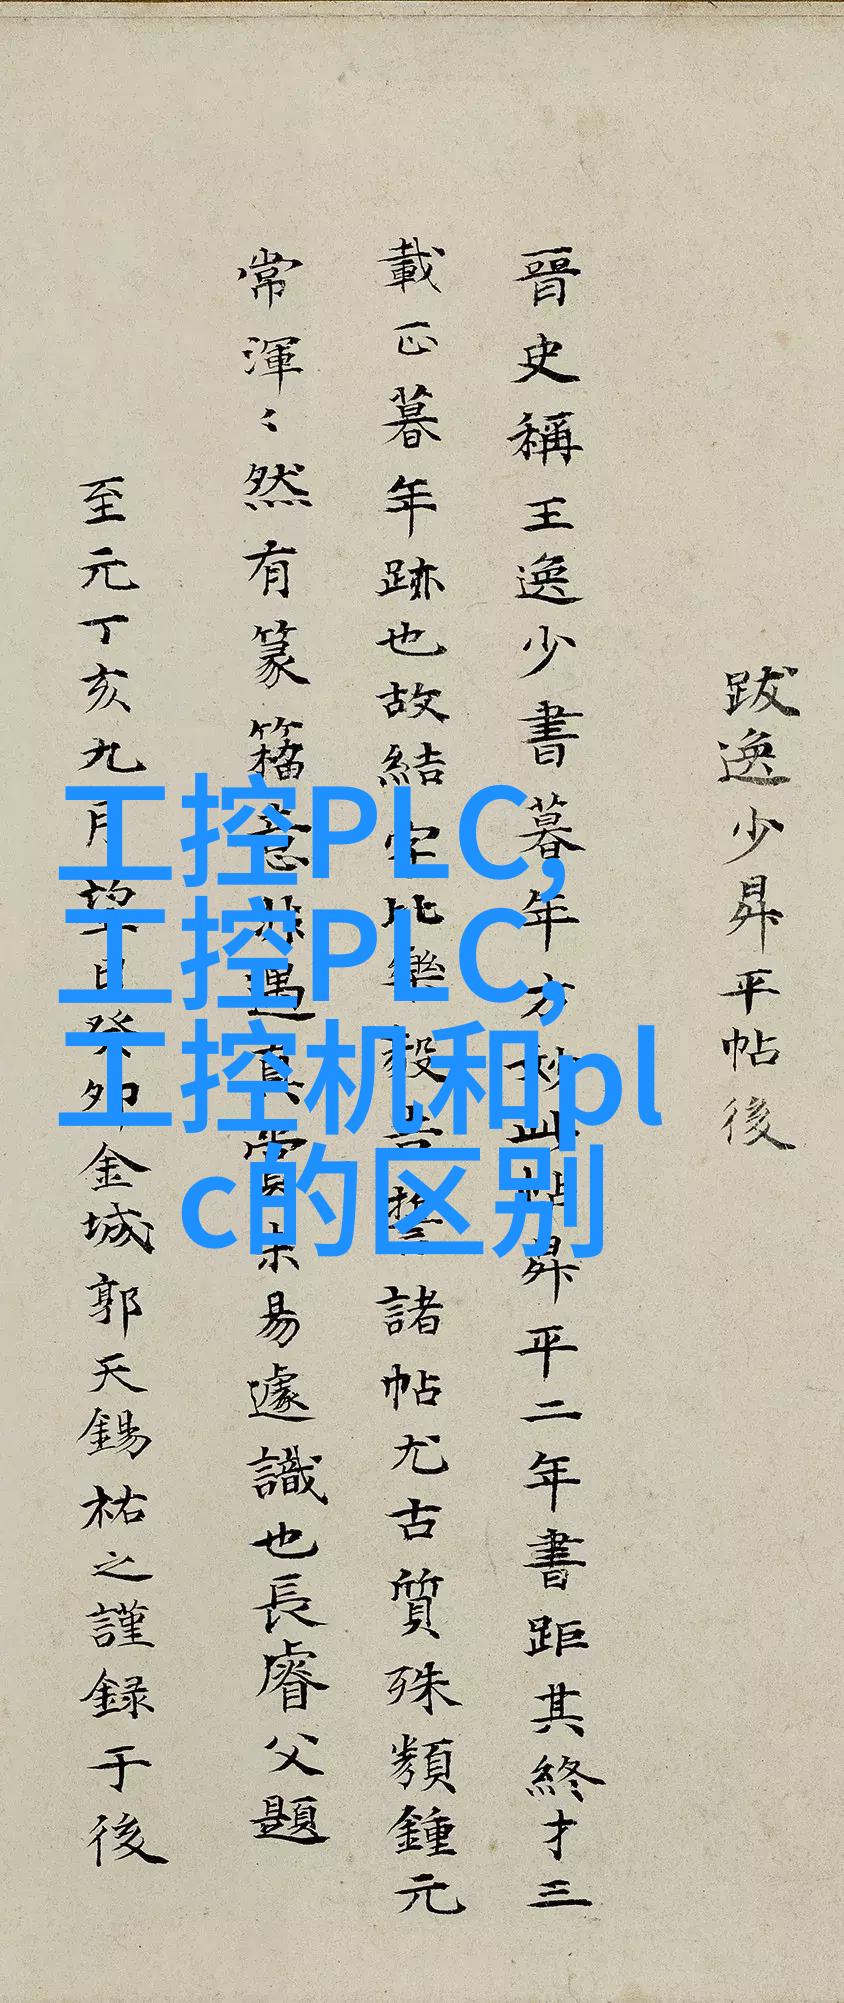 跋逸少昇平帖後
晉史稱王逸少書暮年方妙此帖昇平二年書距其終才三
載正暮年跡也故結字比樂毅告誓諸帖尤古質殊類鍾元
常渾〻然有篆籀意非遇真賞未易遽識也長睿父題
至元丁亥九月望日癸卯金城郭天錫祐之謹録于後
工控PLC,
工控PLC,
工控机和pl
c的区别